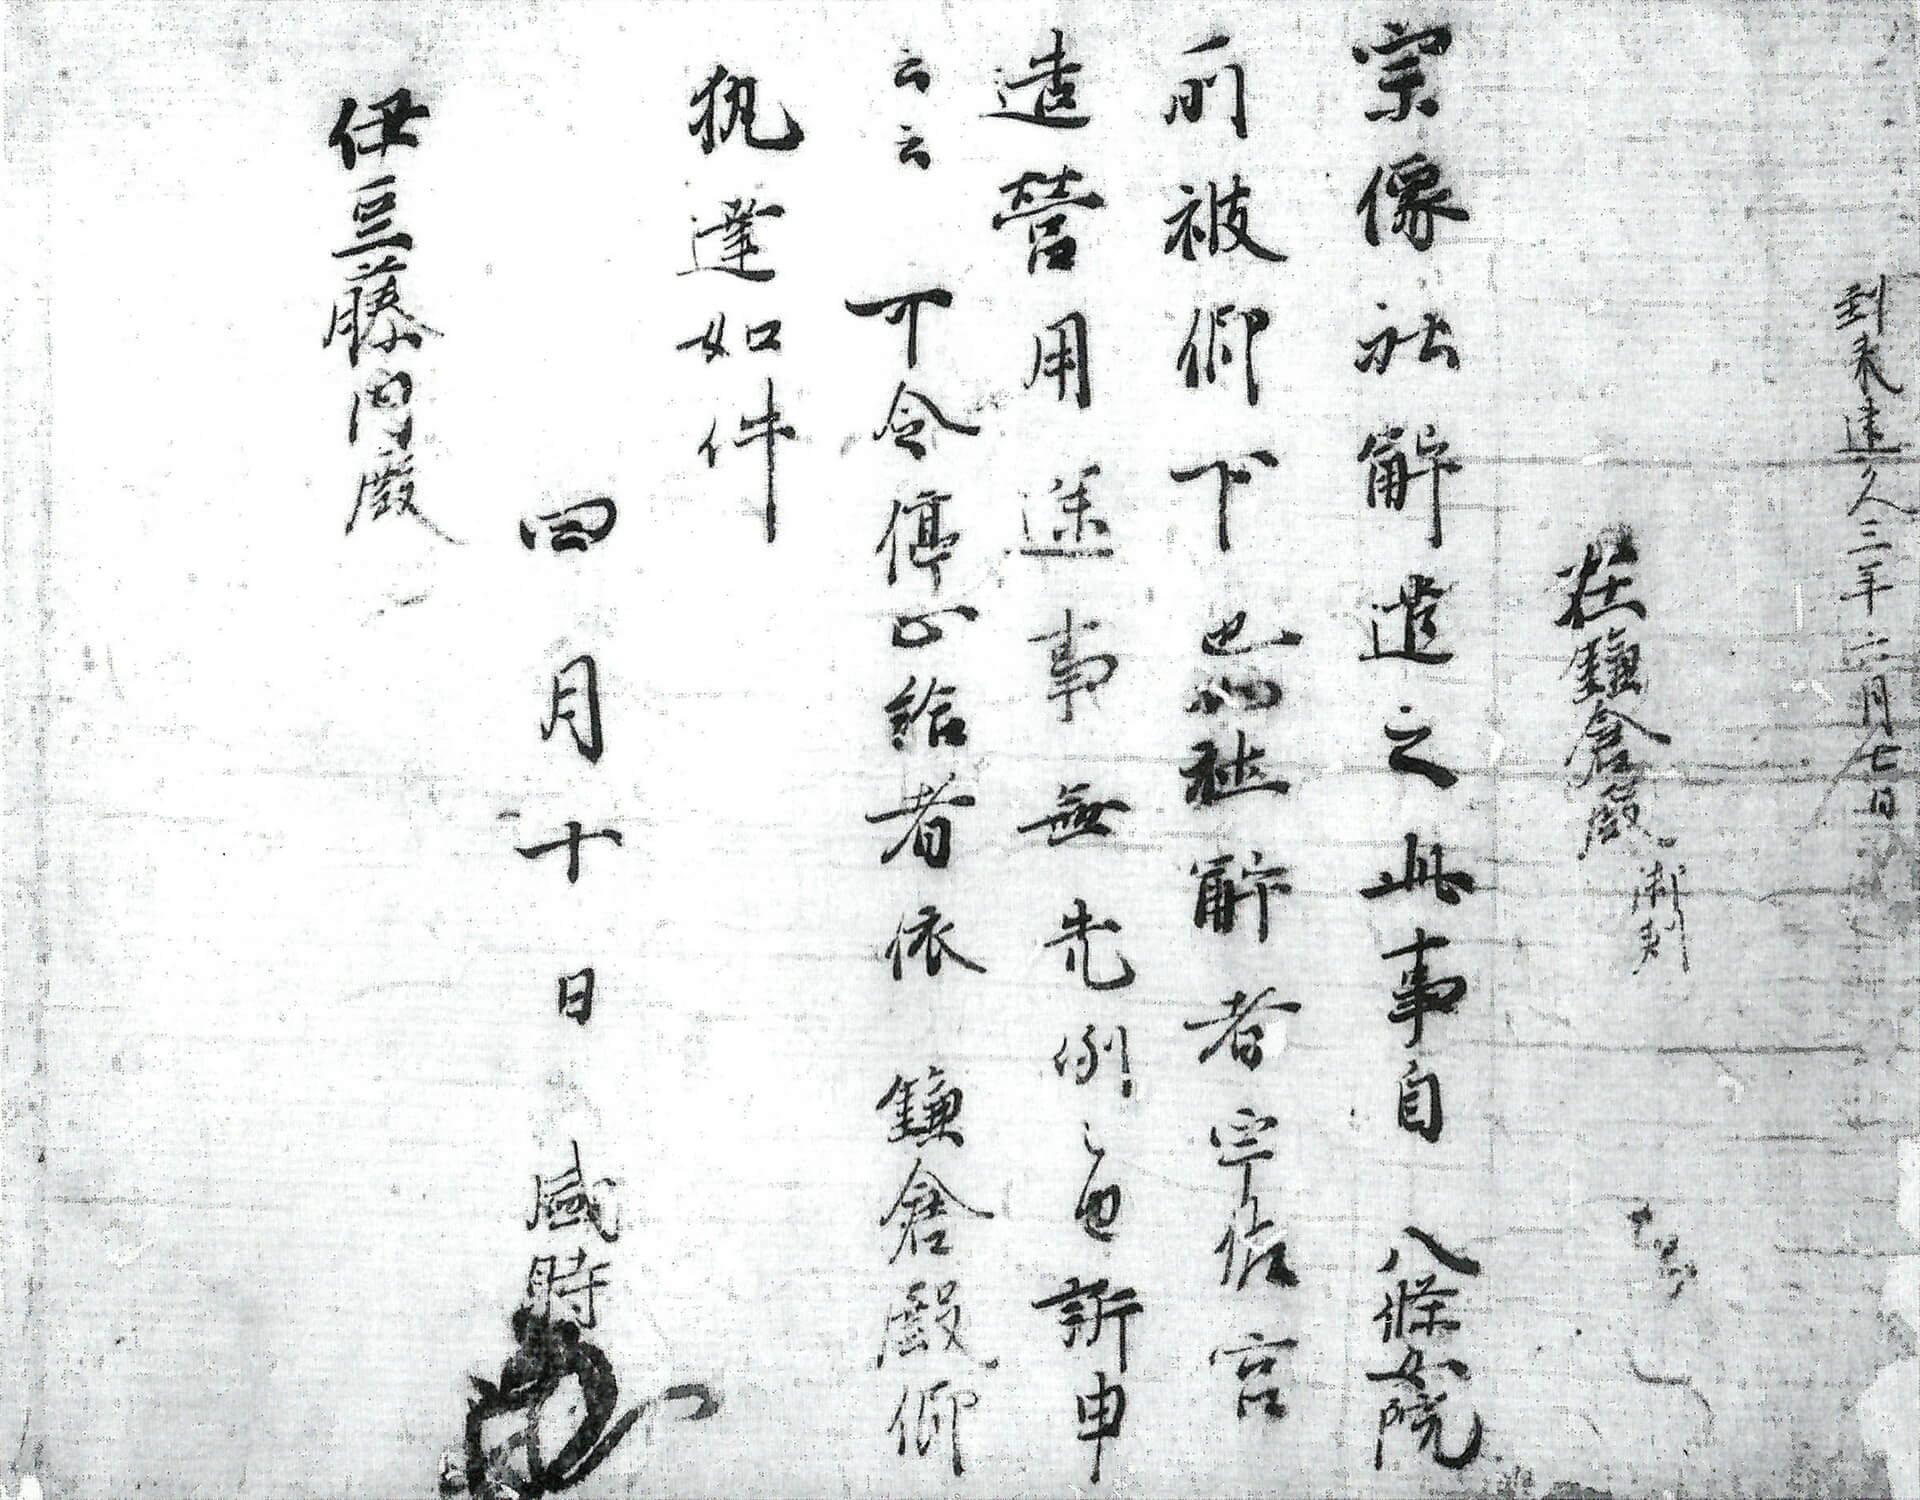 到来建久三年六月七日
在鎌倉殿御判
宗像社解遣之此事自　八條女院
所被仰下也如社解者宰府宮
造營用途事無先例之由所申
云云　可令停止給者依　鎌倉殿仰
執達如件
四月十日　盛時
伊豆藤内殿